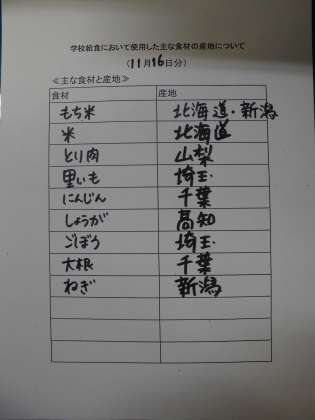 学校給食において使用した主な食材の産地について
(11月16日分)
≪主な食材と産地≫
食材 産地
もち米 北海道・新潟
米 北海道
とり肉 山梨
里いも 埼玉
にんじん 千葉
しょうが 高知
ごぼう 埼玉
大根 千葉
ねぎ 新潟